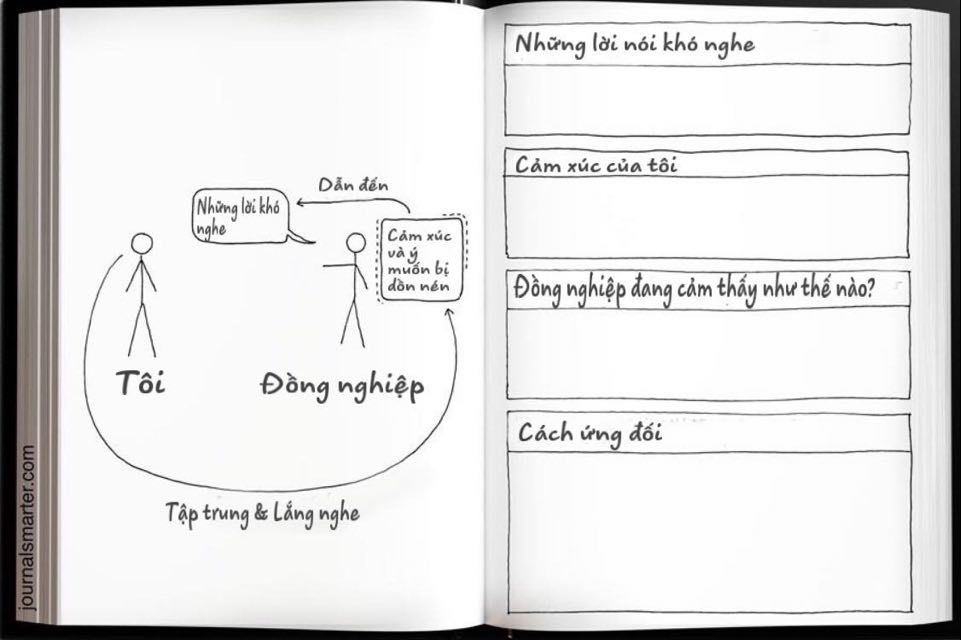 Dẫn đến
Những lời khó
nghe
Cảm xúc
và ý
muốn bị
dồn nén
Tôi
Đồng nghiệp
Tập trung & Lắng nghe
journalsmarter.com
Những lời nói khó nghe
Cảm xúc của tôi
Đồng nghiệp đang cảm thấy như thế nào?
Cách ứng đối